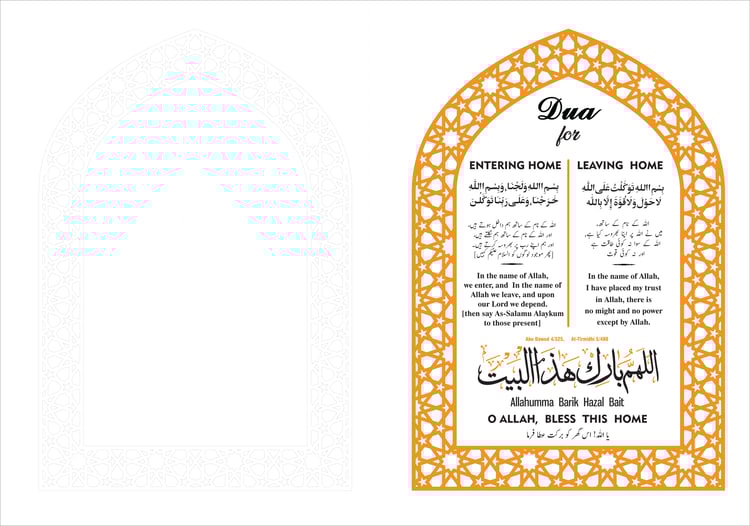 Dua
for
ENTERING HOME
بِسْمِ اللهِ وَلَجْنَا، وَبِسْمِ اللهِ
خَرَجْنَا، وَعَلَى رَبِّنَا تَوَكَّلْنَ
اللہ کے نام کے ساتھ ہم داخل ہوتے ہیں،
اور اللہ کے نام کے ساتھ ہم نکلتے ہیں،
اور ہم اپنے رب پر بھروسہ کرتے ہیں۔
[پھر موجود لوگوں کو السلام علیکم کہیں]
In the name of Allah,
we enter, and In the name of
Allah we leave, and upon
our Lord we depend,
[then say As-Salamu Alaykum
to those present]
LEAVING HOME
بِسْمِ اللهِ تَوَكَّلْتُ عَلَى اللهِ
لَا حَوْلَ وَلَا قُوَّةَ إِلَّا بِاللهِ
اللہ کے نام کے ساتھ،
میں نے اللہ پر اپنا بھروسہ کیا ہے،
اللہ کے سوا نہ کوئی طاقت ہے
اور نہ کوئی قوت
In the name of Allah,
I have placed my trust
in Allah, there is
no might and no power
except by Allah.
Abu Dawud 4:325, At-Tirmidhi 5:490
اللهم بارك هذا البيت
Allahumma Barik Hazal Bait
O ALLAH, BLESS THIS HOME
یا اللہ! اس گھر کو برکت عطا فرما